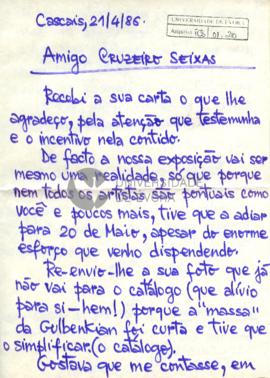 Cascais, 21/4/86.
UNIVERSIDADE DE ÉVORA
Amigo CRUZEIRO SEIXAS
Recebi a sua carta o que lhe
agradeço, pela atenção que testemunha
e o incentivo nela contido.
De facto a nossa exposição vai ser
mesmo uma realidade, só que porque
nem todos os artistas são pontuais como
você e poucos mais, tive que a adiar
para 20 de Maio, apesar do enorme
esforço que venho dispendendo.
Re-envio-lhe a sua foto que já
não vai para o catálogo (que alívio
para si-hem!) porque a "massa"
da Gulbenkian foi curta e tive que
o simplificar. (o catálogo).
Gostava que me contasse, em